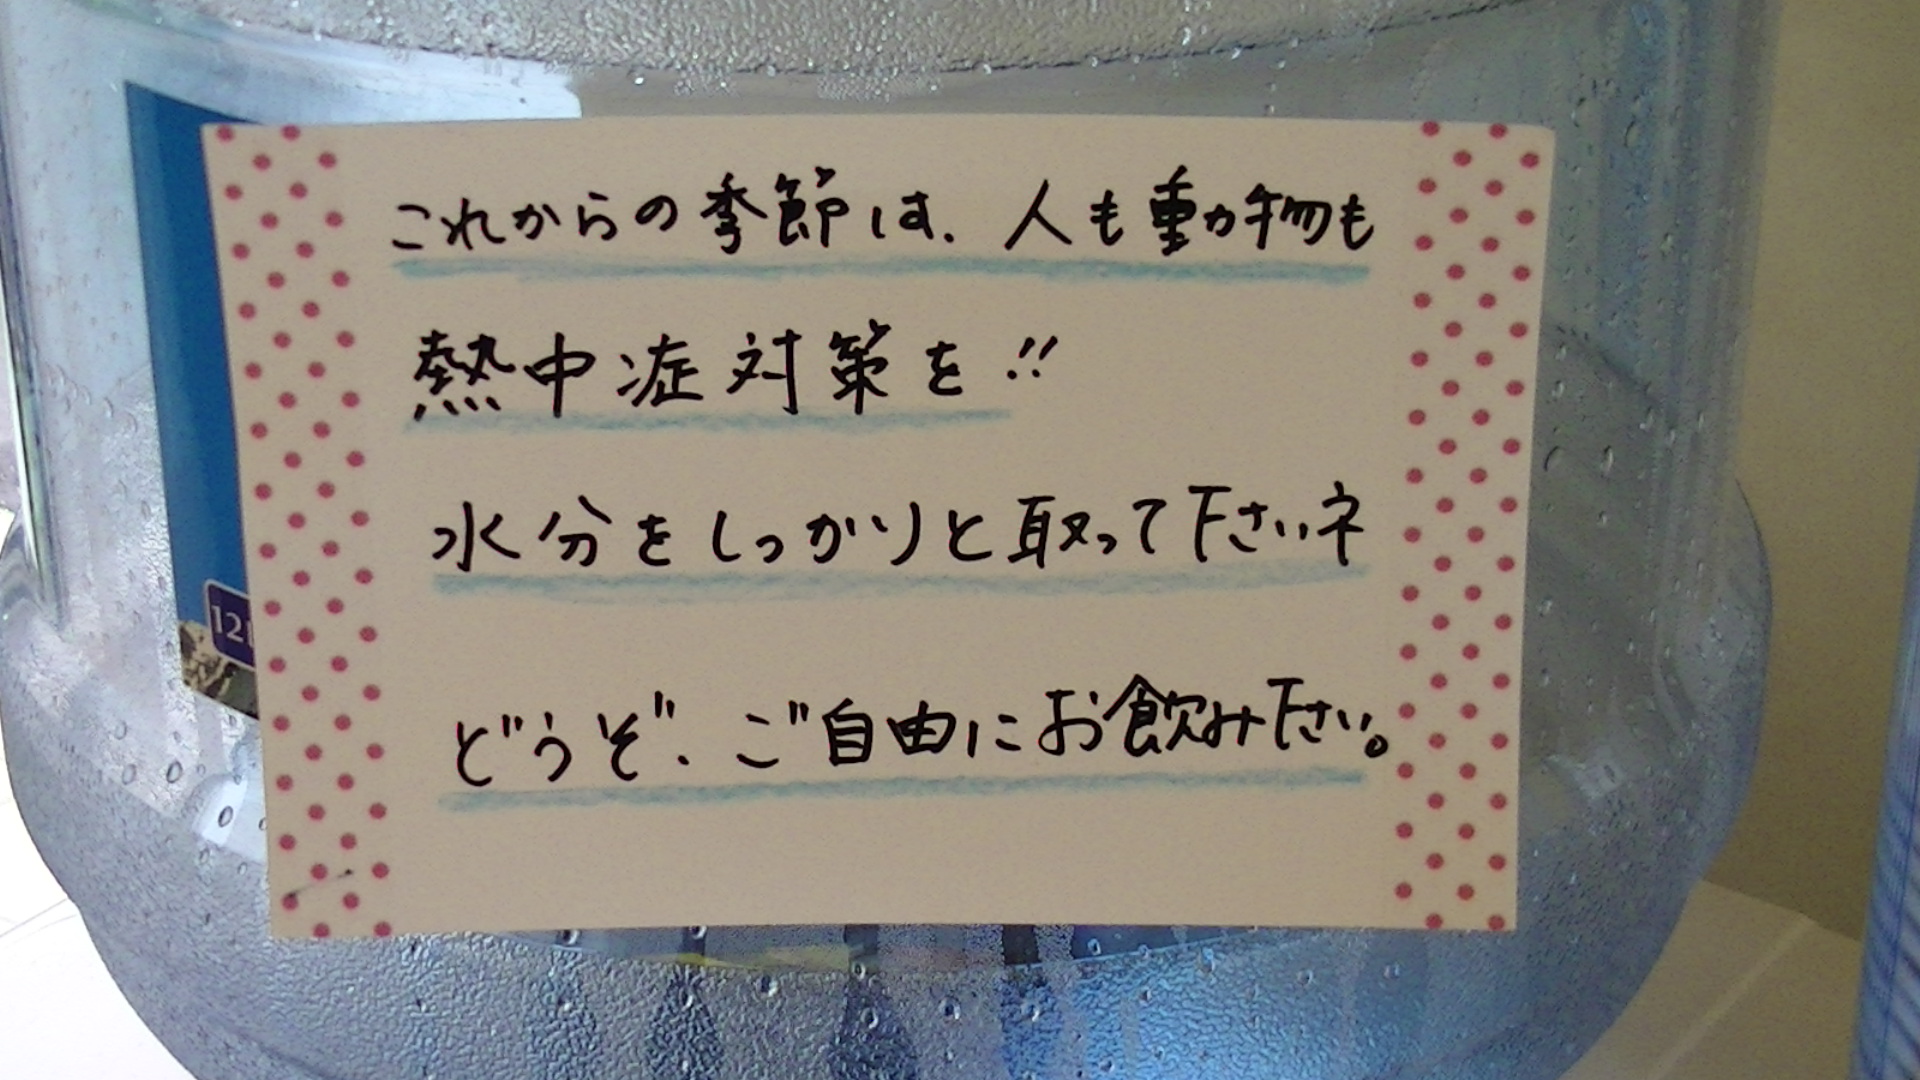 これからの季節は、人も動物も
熱中症対策を!!
水分をしっかりと取って下さいネ
どうぞ、ご自由にお飲み下さい。
12